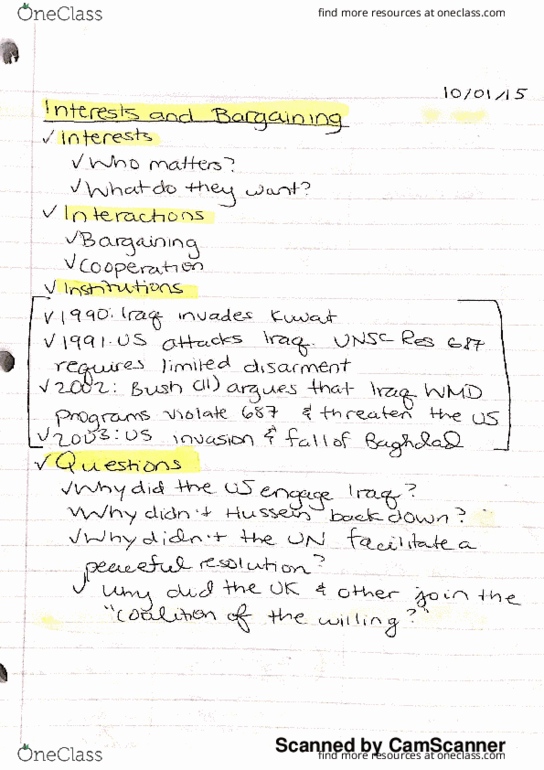 OneClass
find more resources at oneclass.com
10/01/15
Interests and Bargaining
✓ Interests
✓ Who matters?
✓ What do they want?
✓ Interactions
✓ Bargaining
✓ Cooperation
✓ Institutions
✓ 1990: Iraq invades Kuwait
✓ 1991: US attacks Iraq. UNSC Res 687
requires limited disarment
✓ 2002: Bush (II) argues that Iraq WMD
programs violate 687 & threaten the US
✓ 2003: US invasion & fall of Baghdad
✓ Questions
✓ Why did the US engage Iraq?
Why didn't Hussein back down?
✓ Why didn't the UN facilitate a
peaceful resolution?
✓ Why did the UK & other join the
"coalition of the willing?"
Scanned by CamScanner
OneClass
find more resources at oneclass.com